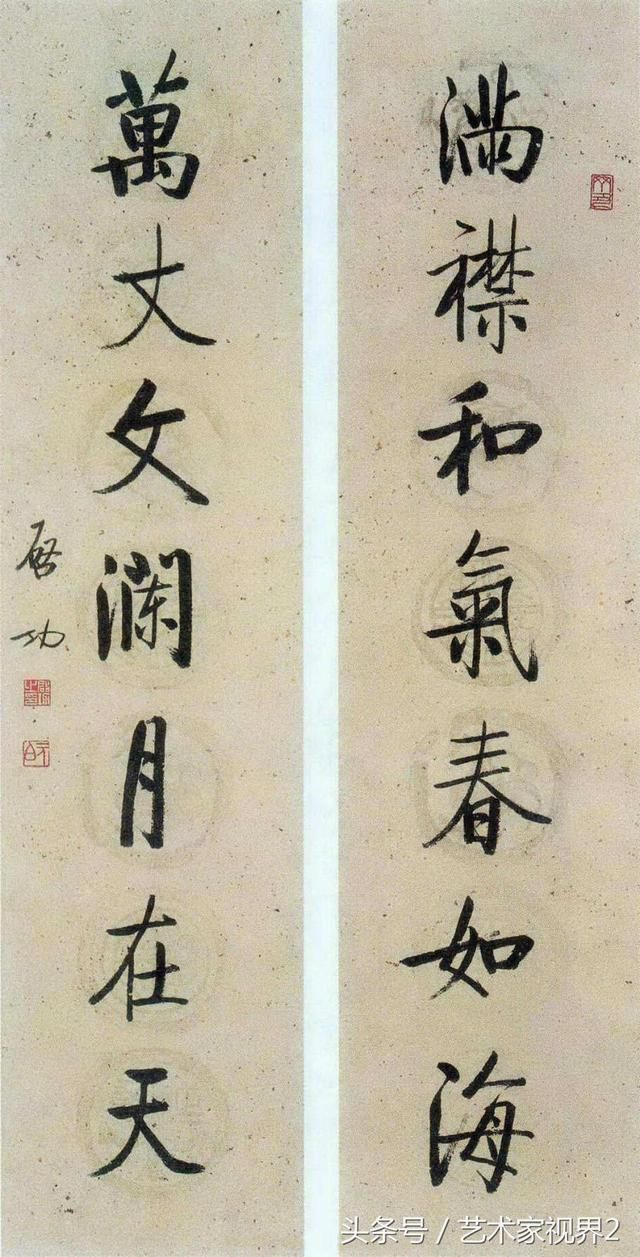 满襟和氣春如海
萬丈文澜月在天
启功
头条号 / 艺术家视界2